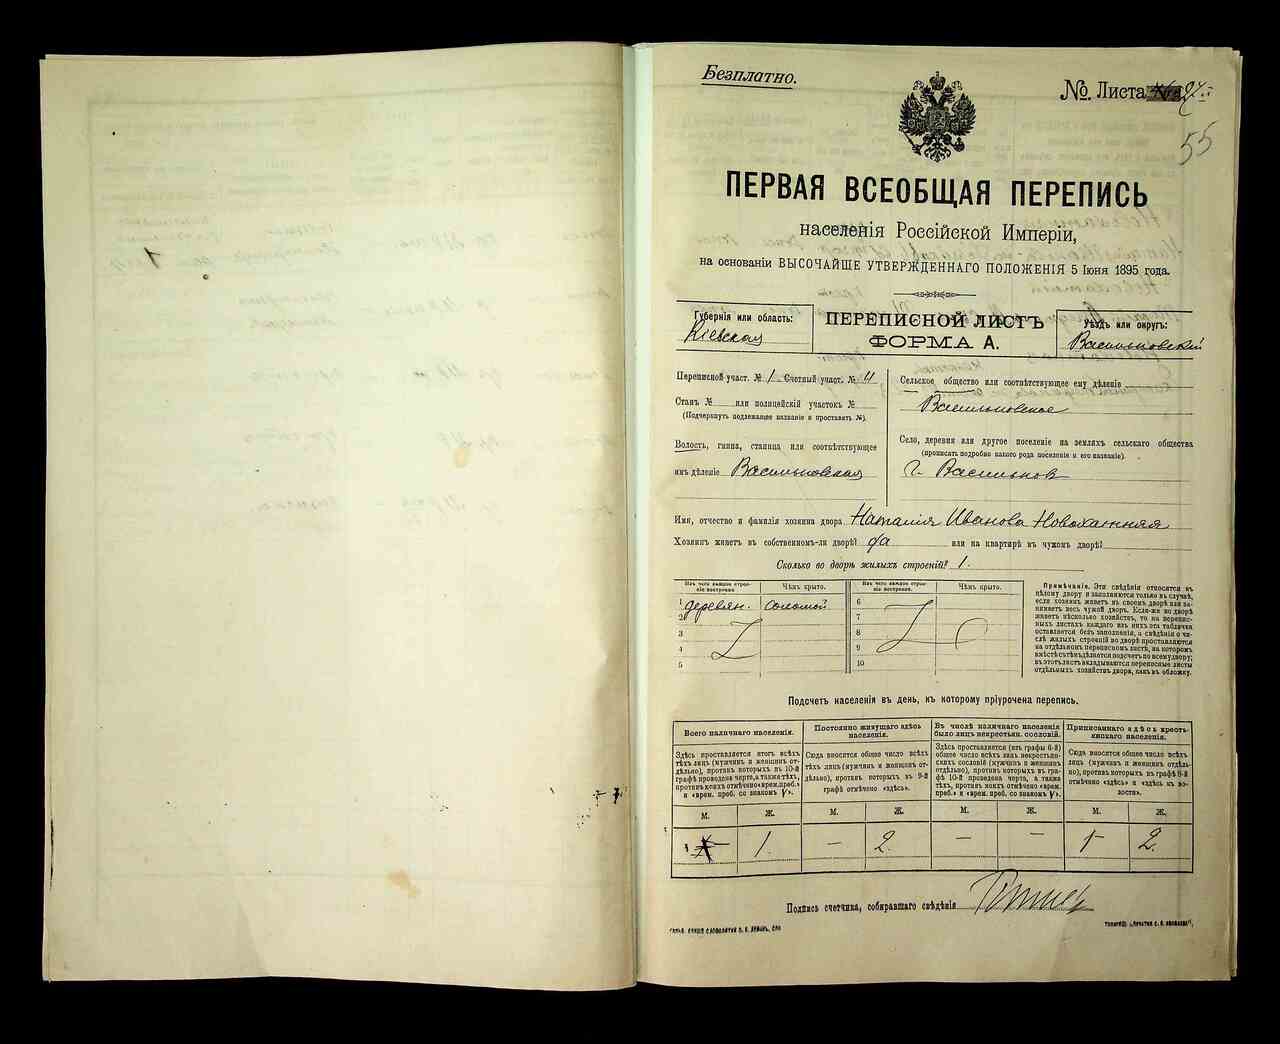 Безплатно.
№ Листа
55
ПЕРВАЯ ВСЕОБЩАЯ ПЕРЕПИСЬ
населенія Россійской Имперіи,
на основаніи ВЫСОЧАЙШЕ УТВЕРЖДЕННАГО ПОЛОЖЕНІЯ 5 Іюня 1895 года.
Губернія или область:
Кіевская
ПЕРЕПИСНОЙ ЛИСТЪ
ФОРМА А.
Уѣздъ или округъ:
Васильковскій
Переписной участ. № 1 Счетный участ. № 11
Станъ № или полицейскій участокъ №
(Подчеркнуть подлежащее названіе и проставить №).
Волость, гмина, станица или соотвѣтствующее
имъ дѣленіе Васильковская
Сельское общество или соотвѣтствующее ему дѣленіе
Васильковское
Село, деревня или другое поселеніе на земляхъ сельскаго общества
(прописать подробно какого рода поселеніе и его названіе).
г. Васильков
Имя, отчество и фамилія хозяина двора Наталія Иванова Новохатняя
Хозяинъ живетъ въ собственномъ-ли дворѣ? да или на квартирѣ въ чужомъ дворѣ?
Сколько во дворѣ жилыхъ строеній? 1.
Изъ чего каждое строеніе построено. Чѣмъ крыто. Изъ чего каждое строеніе построено. Чѣмъ крыто.
1 деревян. соломой 6
2 7
3 8
4 9
5 10
Примѣчаніе. Эти свѣдѣнія относятся къ
цѣлому двору и заполняются только въ случаѣ,
если хозяинъ живетъ въ своемъ дворѣ или занимаетъ
весь чужой дворъ. Если-же во дворѣ
живетъ нѣсколько хозяйствъ, то на переписныхъ
листахъ каждаго изъ нихъ эта табличка
оставляется безъ заполненія, а свѣдѣнія о числѣ
жилыхъ строеній во дворѣ проставляются
на отдѣльномъ переписномъ листѣ, на которомъ
вмѣстѣ съ тѣмъ дѣлается подсчетъ по всему двору;
въ этотъ листъ вкладываются переписные листы
отдѣльныхъ хозяйствъ двора, какъ въ обложку.
Подсчетъ населенія въ день, къ которому пріурочена перепись.
Всего наличнаго населенія.
Здѣсь проставляется итогъ всѣхъ
тѣхъ лицъ (мужчинъ и женщинъ отдѣльно),
противъ которыхъ въ 10-й
графѣ проведена черта, а также тѣхъ,
противъ коихъ отмѣчено «врем. преб.»
и «врем. проб. со знакомъ V».
Постоянно живущаго здѣсь
населенія.
Сюда вносится общее число всѣхъ
тѣхъ лицъ (мужчинъ и женщинъ отдѣльно),
противъ которыхъ въ 9-й
графѣ отмѣчено «здѣсь».
Въ числѣ наличнаго населенія
было лицъ некрестьян. сословій.
Здѣсь проставляется (изъ графы 6-й)
общее число всѣхъ лицъ некрестьянскихъ
сословій (мужчинъ и женщинъ
отдѣльно), противъ которыхъ въ графѣ
10-й проведена черта, а также
тѣхъ, противъ коихъ отмѣчено «врем.
преб.» и «врем. проб. со знакомъ V».
Приписаннаго здѣсь крестьянскаго
населенія.
Сюда вносится общее число всѣхъ
лицъ (мужчинъ и женщинъ отдѣльно),
противъ которыхъ въ графѣ 8-й
отмѣчено «здѣсь» и «здѣсь къ волости».
М. Ж. М. Ж. М. Ж. М. Ж.
1. — 2. — — 1 2.
Подпись счетчика, собиравшаго свѣдѣнія